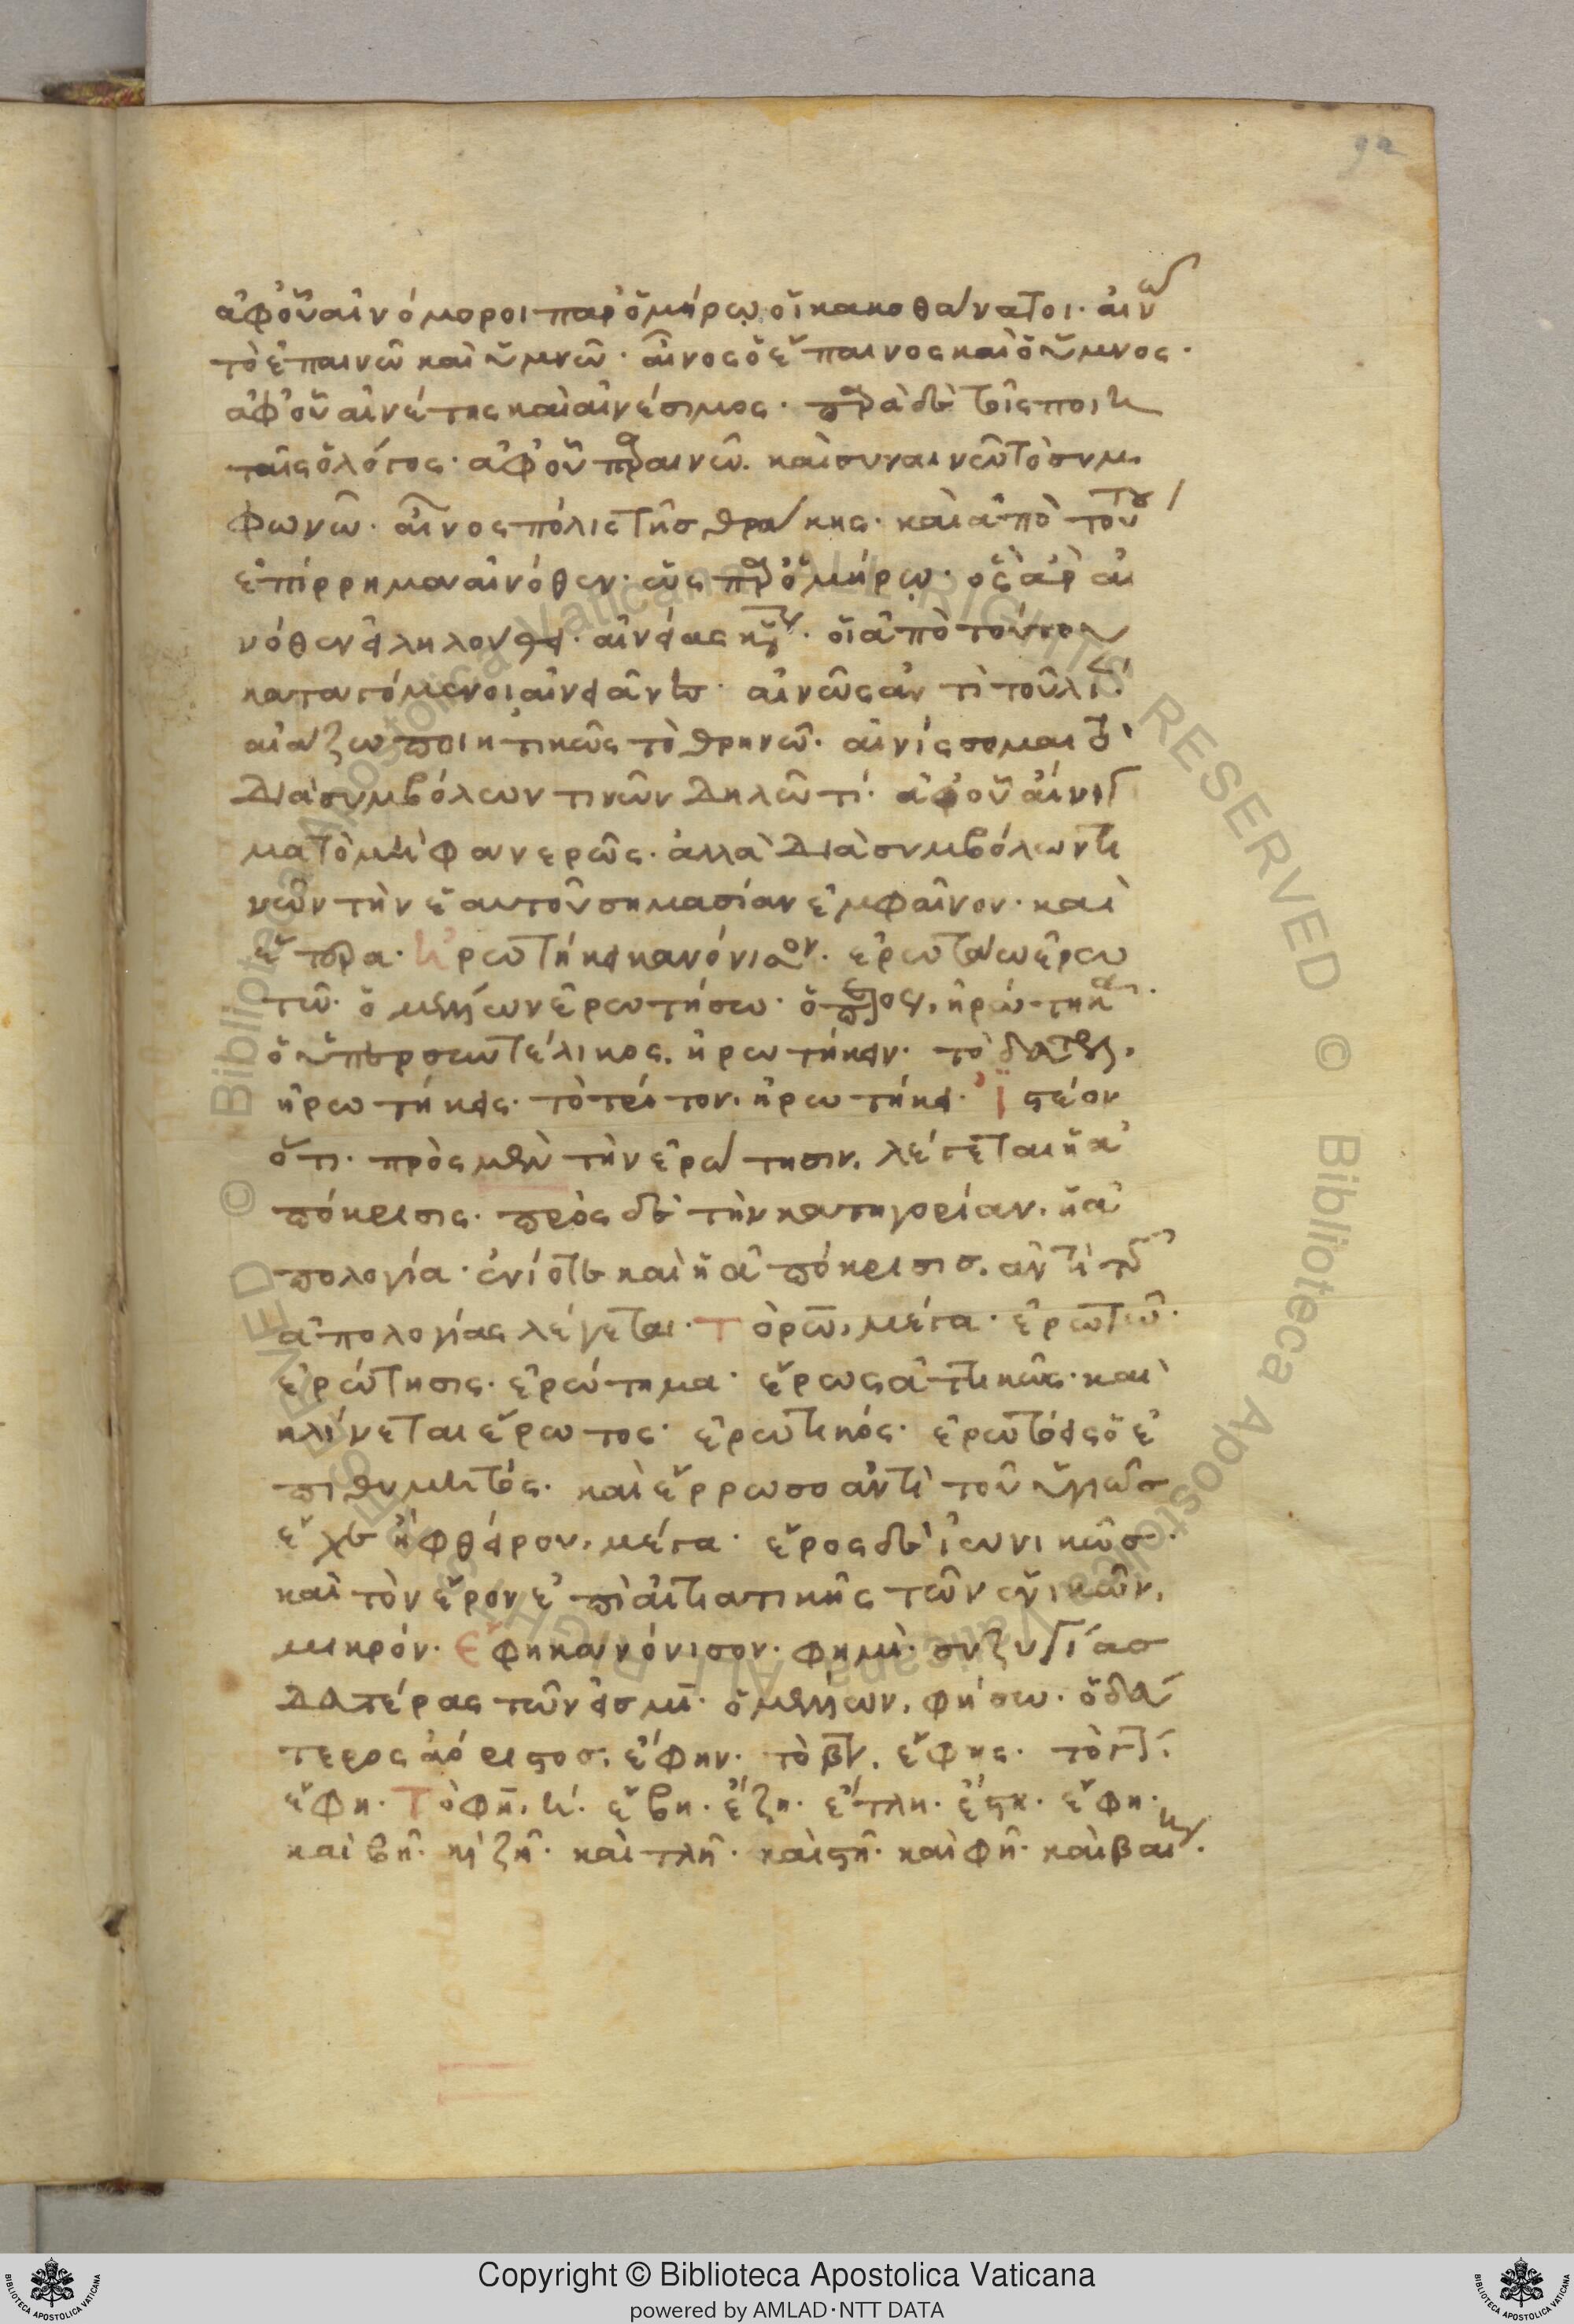 92
ἀφ' οὗ αἰνόμοροι παρ' ὁμήρω οἱ κακοθάνατοι· αἰνῶ
τὸ ἐπαινῶ καὶ ὑμνῶ· αἶνος ὁ ἔπαινος καὶ ὁ ὕμνος·
ἀφ' οὗ αἰνέτης καὶ αἰνέσιμος· παρὰ δὲ τοῖς ποιη
ταῖς ὁ λόγος· ἀφ' οὗ παραινῶ. καὶ συναινῶ τὸ συμ
φωνῶ· αἶνος πόλις τῆς θράκης· καὶ ἀπὸ τούτου
ἐπίρρημα αἰνόθεν· ὡς παρ' ὁμήρω·
νόθεν οἱ ἀπὸ τούτου
καταγόμενοι αἰνῶς ἀντὶ τοῦ λίαν·
αἰάζω ποιητικῶς τὸ θρηνῶ· αἰνίσσομαι τὸ
διὰ συμβόλων τινῶν δηλῶ τί· ἀφ' οὗ αἴνιγ
μα τὸ μὴ φανερῶς· ἀλλὰ διὰ συμβόλων τι
νῶν τὴν ἑαυτοῦ σημασίαν ἐμφαῖνον· καὶ
ἕτερα· ἠρώτηκα κανόνισον· ἐρωτάω ἐρω
τῶ· ὁ μέλλων ἐρωτήσω· ὁ παρακείμενος, ἠρώτηκα·
ὁ ὑπερσυντέλικος, ἠρωτήκειν· τὸ δεύτερον,
ἠρωτήκεις· τὸ τρίτον, ἠρωτήκει· ἰστέον
ὅτι· πρὸς μὲν τὴν ἐρώτησιν, λέγεται ἡ ἀ
πόκρισις· πρὸς δὲ τὴν κατηγορίαν, ἡ ἀ
πολογία· ἐνίοτε καὶ ἡ ἀπόκρισις, ἀντὶ τῆς
ἀπολογίας λέγεται· τὸ ρω, μέγα· ἐρωτῶ·
ἐρώτησις· ἐρώτημα· ἔρως ἀττικῶς· καὶ
κλίνεται ἔρωτος· ἐρωτικός· ὁ ἐ
πιθυμητός· καὶ ἔρρωσο ἀντὶ τοῦ ὑγιῶς
ἔχε μέγα· ἔρος δὲ ἰωνικῶς·
καὶ τὸν ἔρον ἐπὶ αἰτιατικῆς τῶν ἑνικῶν,
μικρόν· ἔφη κανόνισον· φημὶ· συζυγίας
δευτέρας τῶν εἰς μι· ὁ μέλλων, φήσω· ὁ δεύ
τερος ἀόριστος, ἔφην· τὸ β', ἔφης· τὸ γ',
ἔφη· τὸ φη, η· ἔβη· ἔζη· ἔτλη· ἔστη· ἔφη·
καὶ βῆ· καὶ ζῆ· καὶ τλῆ· καὶ στῆ· καὶ φῆ· καὶ
Copyright © Biblioteca Apostolica Vaticana
powered by AMLAD·NTT DATA